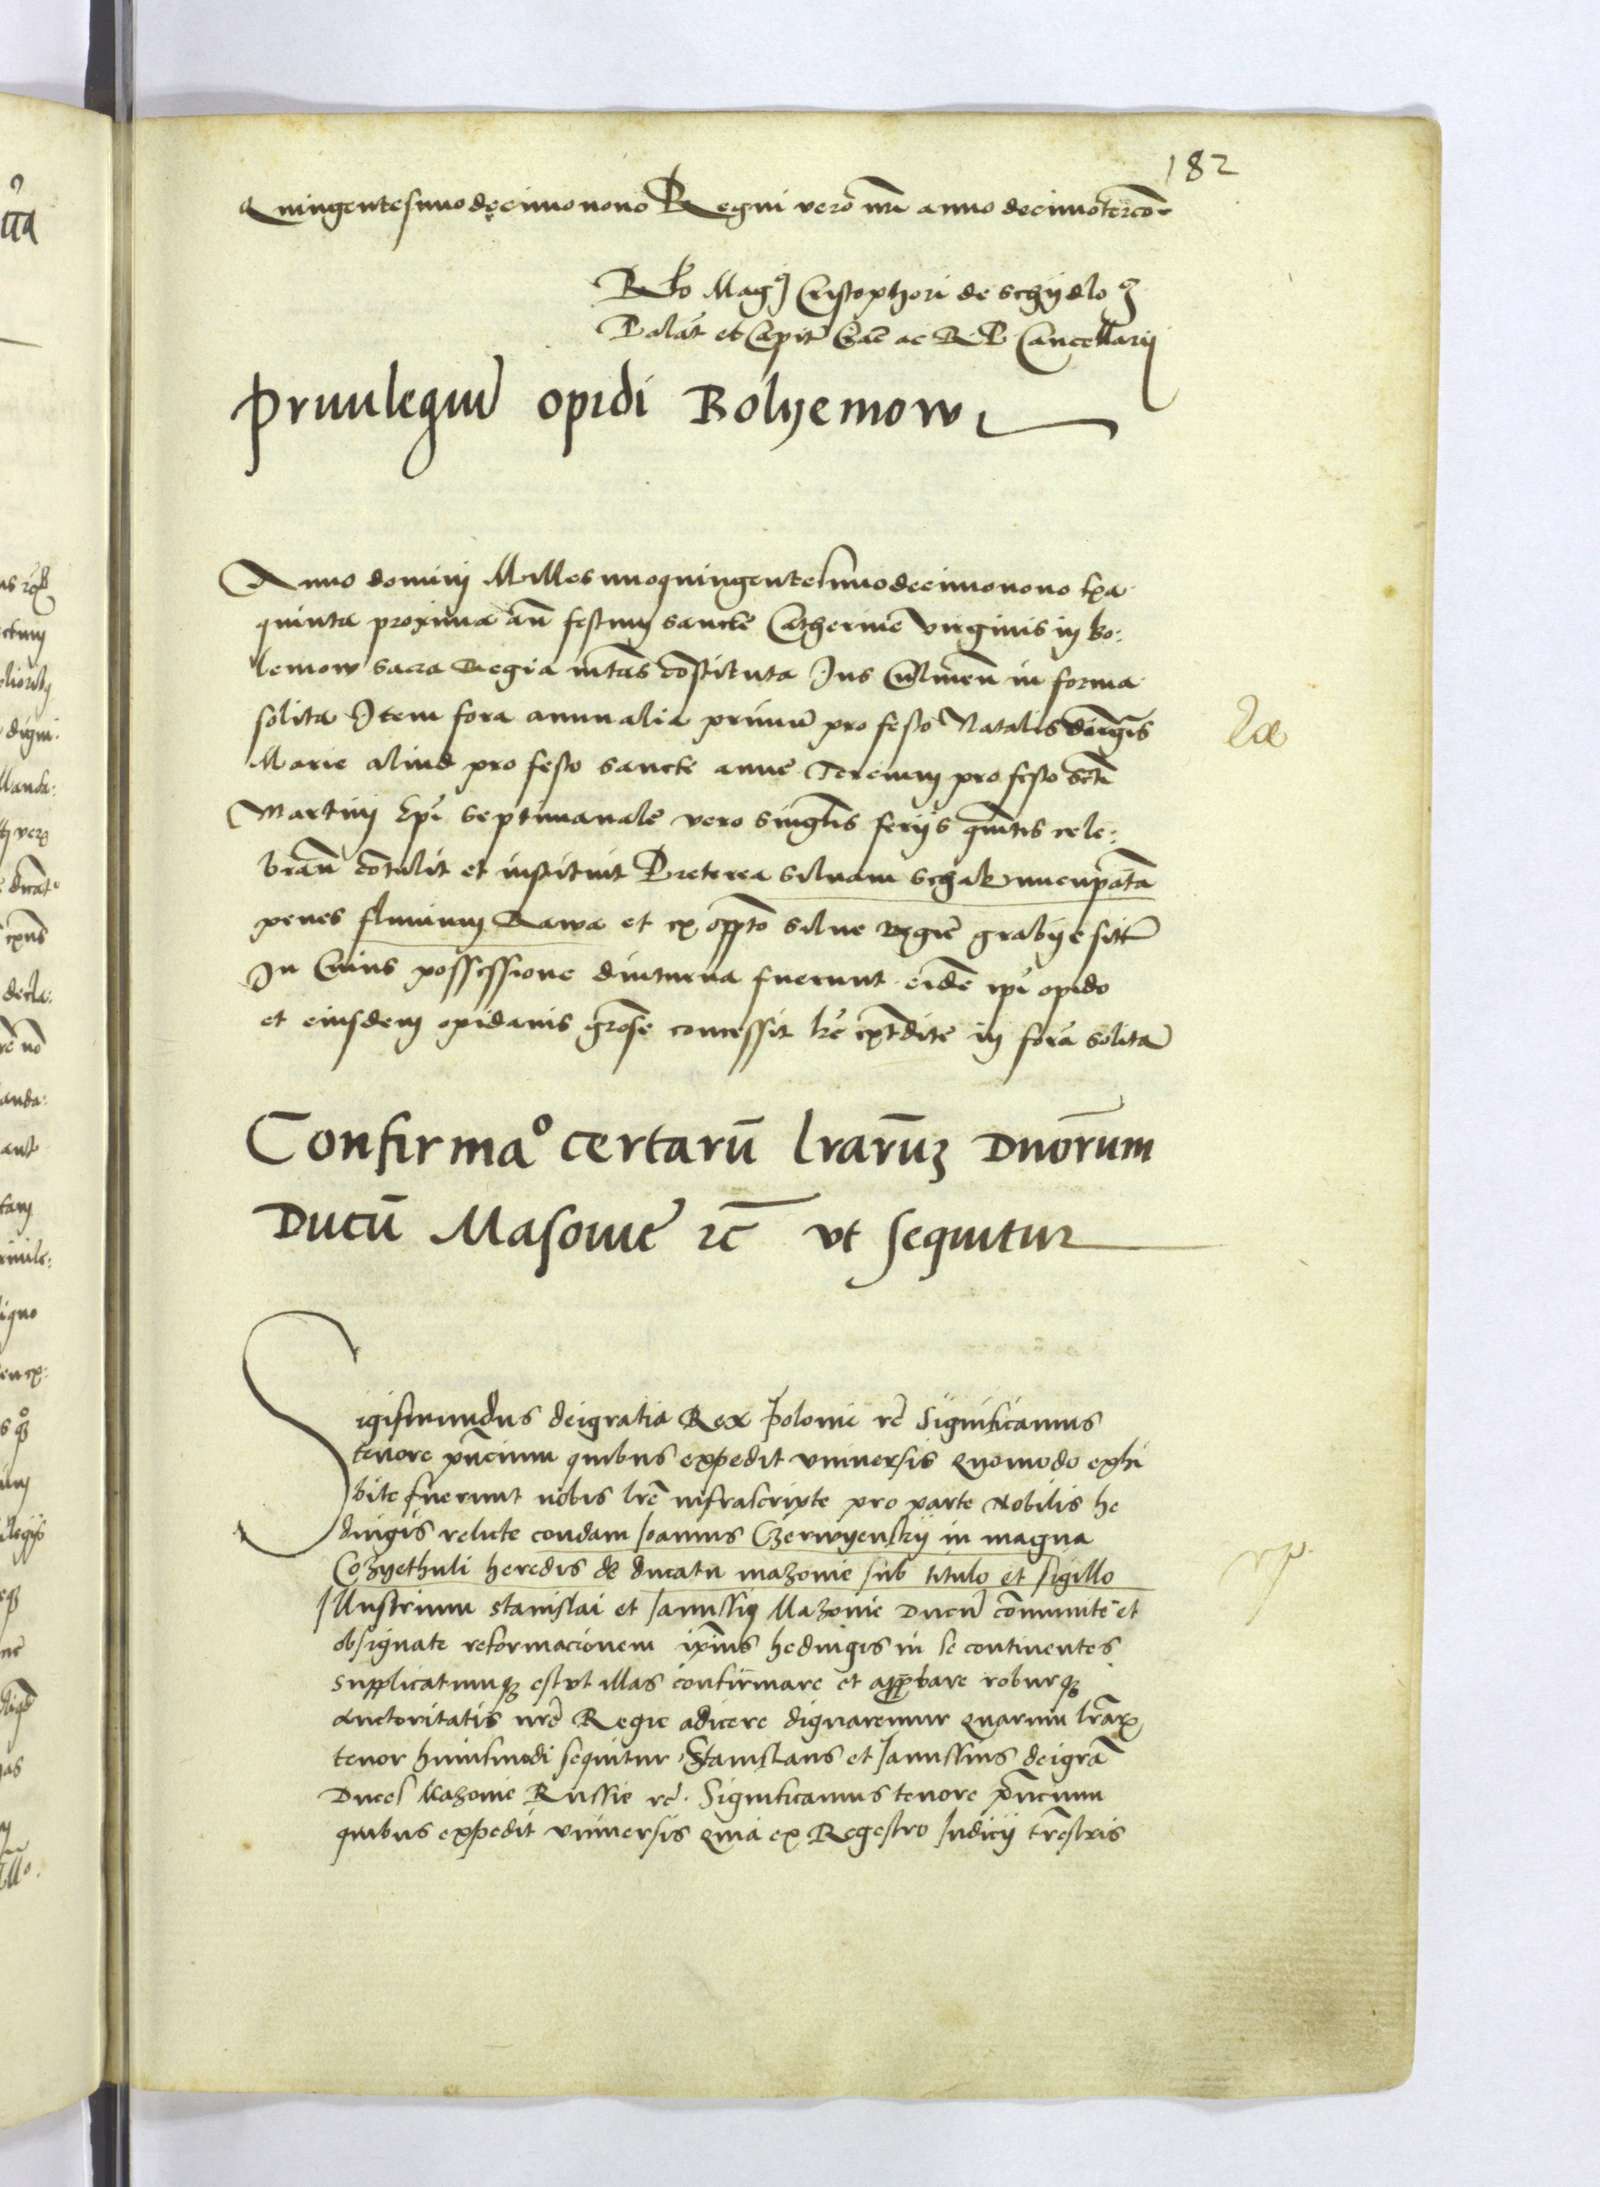 182
Quingentesimodecimonono Regni vero nri anno decimotercio
Rlo Mag Cristophori de Schydlo
Palat et Capit Crac ac R P Cancellarij
Priuilegium opidi Bolyemow
Anno dominj Millesimoquingentesimodecimonono fra
quinta proxima an festum sancte Catherine virginis in Bo:
lemow sacra Regia mtas constituta Jus Culmen in forma
solita Item fora annualia primum pro festo Natalis virginis
Marie aliud pro festo sancte anne Tercium pro festo scti
Martini Epi septimanale vero singulis ferijs quintis cele:
bran contulit et instituit Preterea siluam nuncupatam
penes fluuium Rawa et ex oppto silue Regie grabye sitam
In Cuius possessione diuturna fuerunt eidem ipi opido
et eiusdem opidanis grose concessit lre in forma solita
Confirmao certarū lrarūz Dnorum
Ducū Masouie rc vt sequitur
Sigismundus deigratia Rex Polonie rc Significamus
tenore pncium quibus expedit vniuersis Quomodo exhi
bite fuerunt nobis lre infrascripte pro parte Nobilis he
duigis relicte condam Joannis Czerwyenskij in magna
Cozyethuli heredis de ducatu mazouie sub titulo et sigillo
Illustrium Stanislai et Janussij Mazouie Ducum communite et
obsignate reformacionem ipius heduigis in se continentes
Supplicatumq est vt illas confirmare et approbare roburq
auctoritatis nre Regie adicere dignaremur Quarum lrarx
tenor huiusmodi sequitur Stanislaus et Janussius deigra
Duces Mazouie Russie rc Significamus tenore pncium
quibus expedit vniuersis Quia ex Regestro Judicij trestris